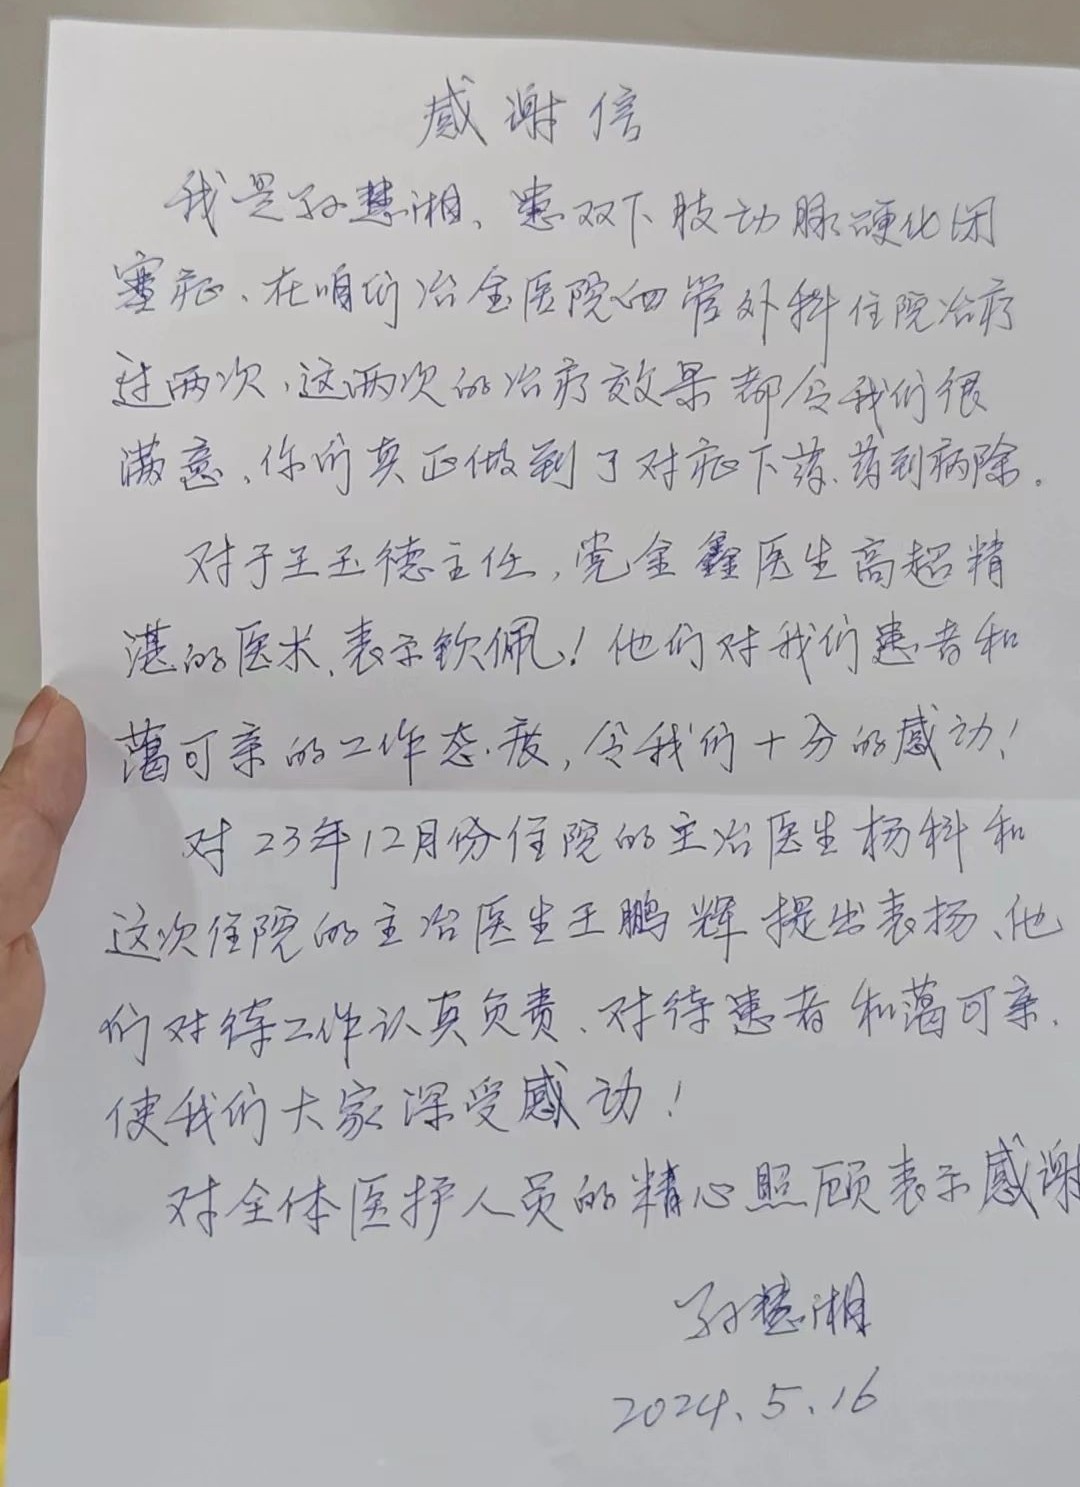 感谢信
我是孙慧湘、患双下肢动脉硬化闭
塞症、在咱们冶金医院血管外科住院治疗
过两次、这两次的治疗效果都令我们很
满意、你们真正做到了对症下药、药到病除。
对于王玉德主任，党金鑫医生高超精
湛的医术、表示钦佩！他们对我们患者和
蔼可亲的工作态度，令我们十分的感动！
对23年12月份住院的主治医生杨科和
这次住院的主治医生王鹏辉提出表扬、他
们对待工作认真负责、对待患者和蔼可亲、
使我们大家深受感动！
对全体医护人员的精心照顾表示感谢
孙慧湘
2024.5.16